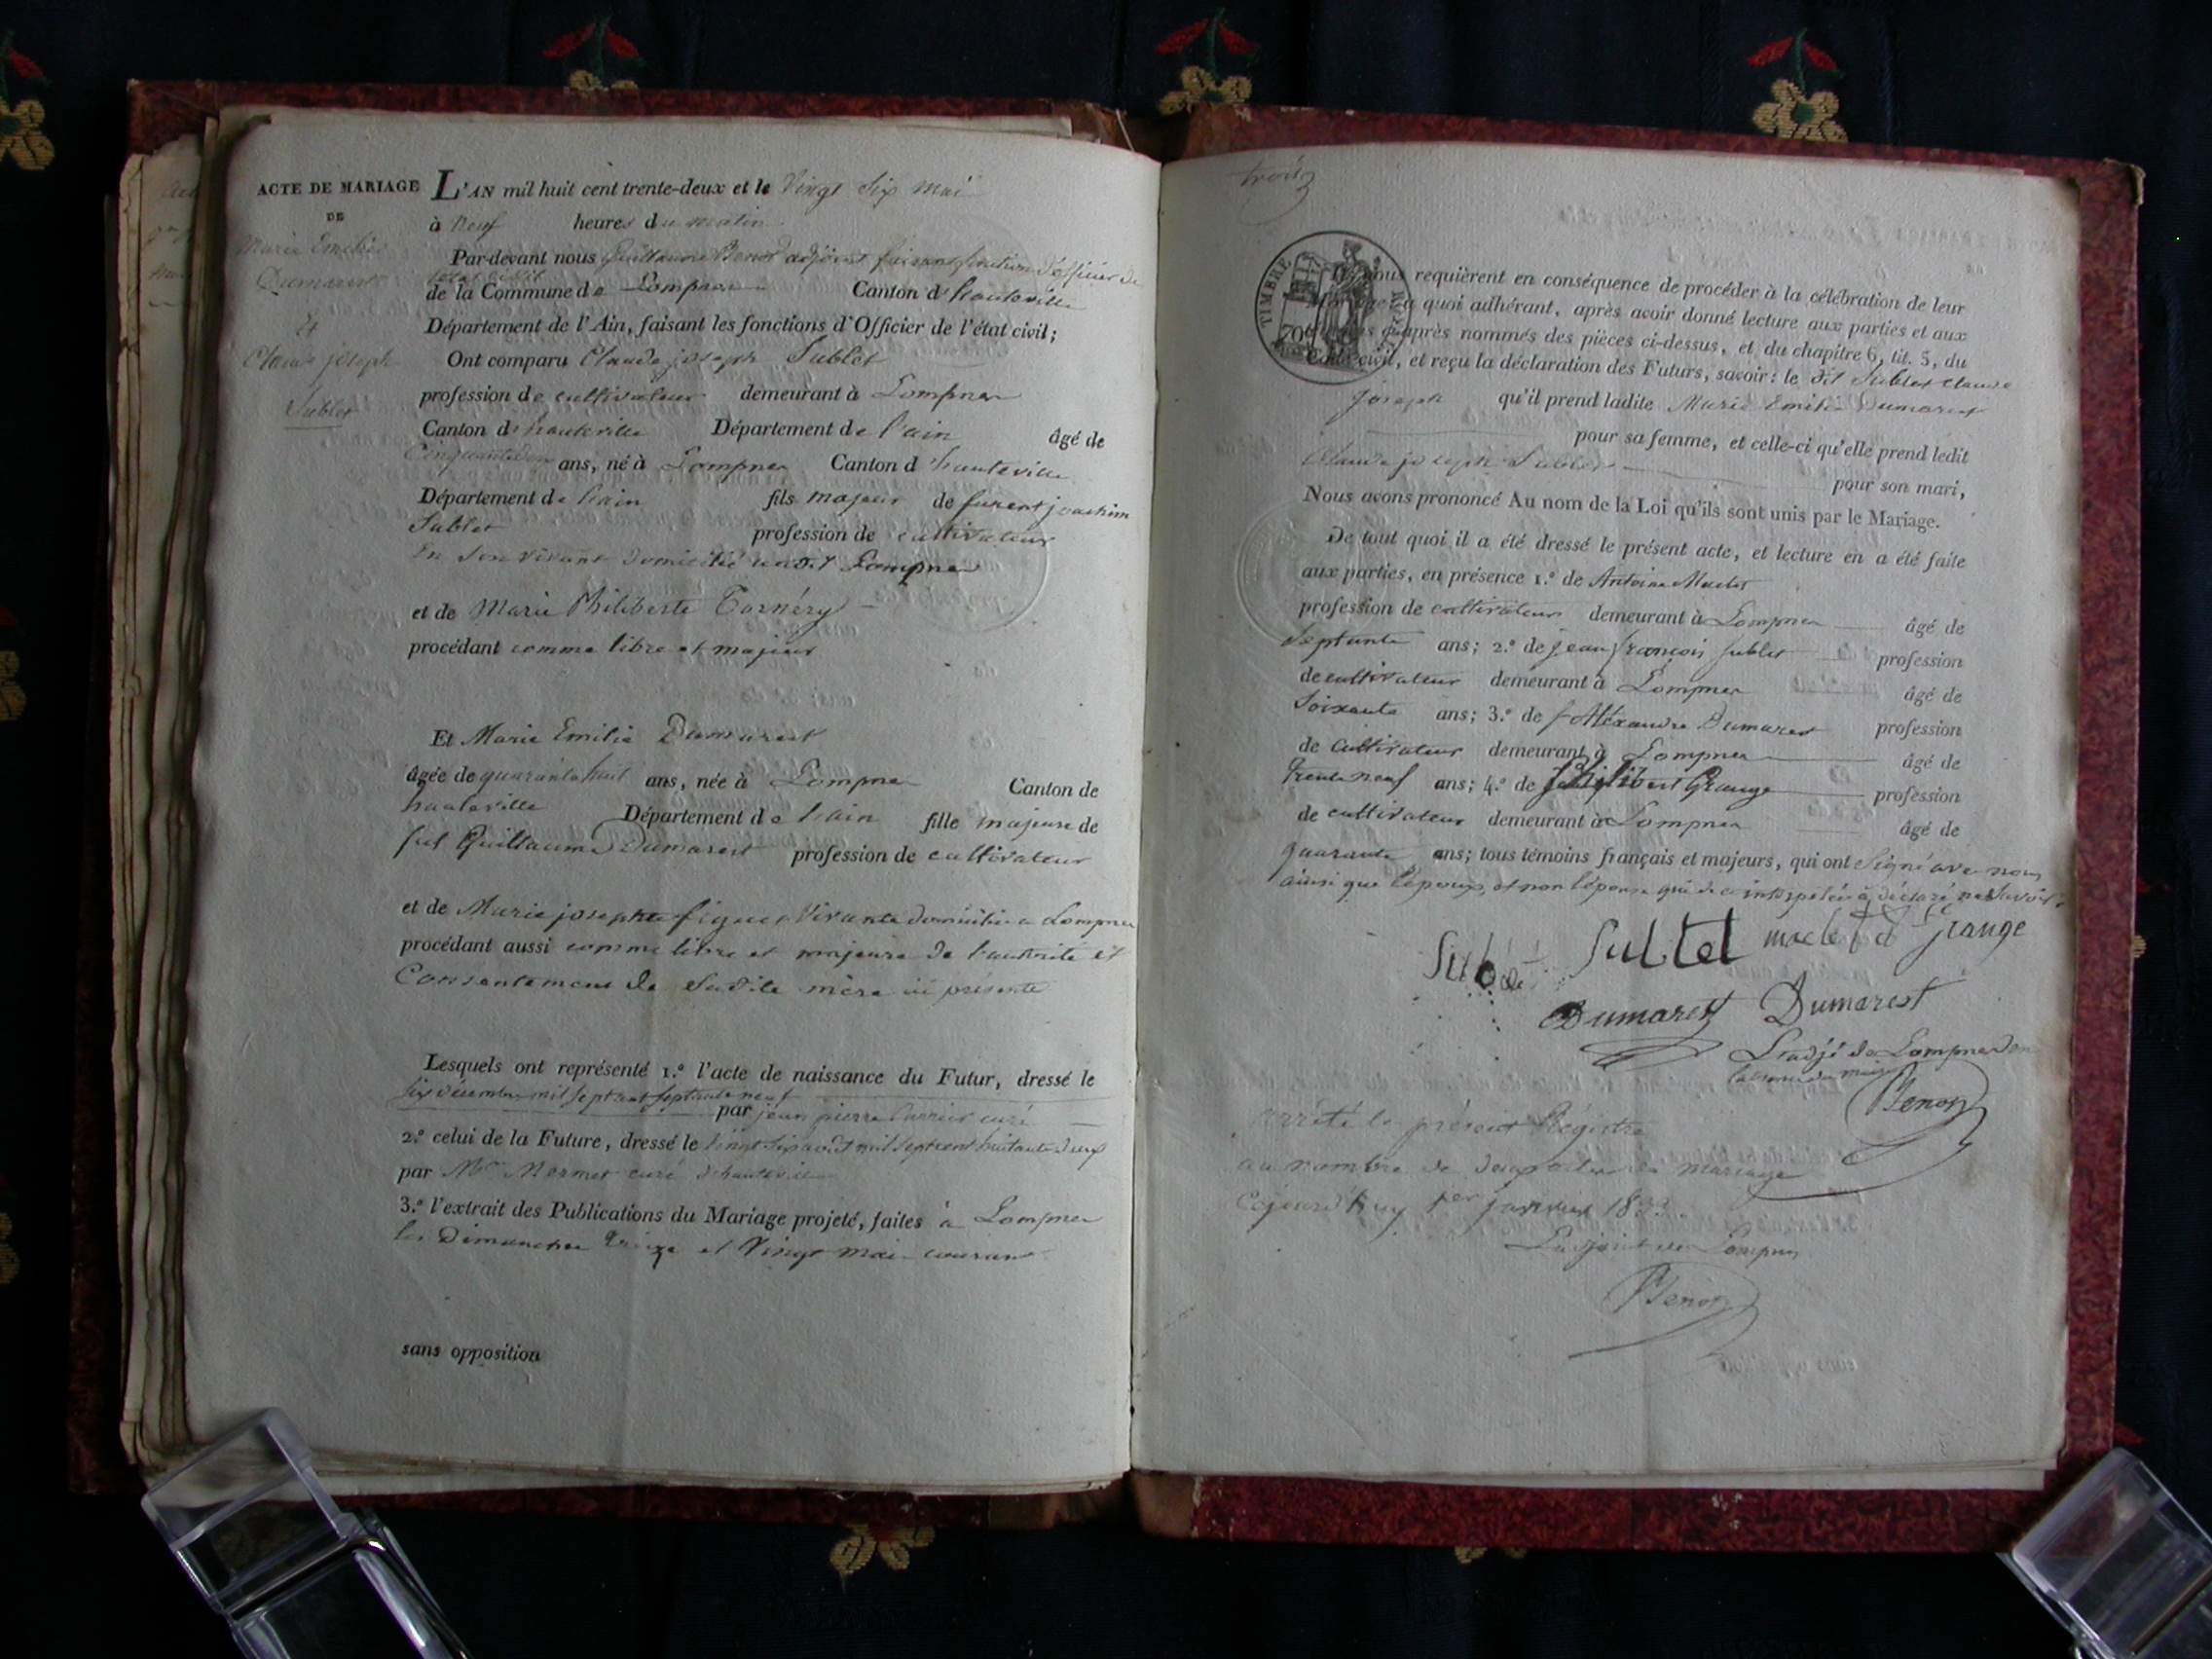 ACTE DE MARIAGE
DE
Marie Emilie
Dumarest
Et
Claude joseph
Sublet
L'AN mil huit cent trente-deux et le Vingt Six mai
à neuf heures du matin
Par-devant nous Guillaume Benoit adjoint faisant fonction d'officier de
l'état civil
de la Commune de Lompnes Canton d'hauteville
Département de l'Ain, faisant les fonctions d'Officier de l'état civil;
Ont comparu Claude joseph Sublet
profession de cultivateur demeurant à Lompnes
Canton d'hauteville Département de l'ain âgé de
ans, né à Lompnes Canton d'hauteville
Département de l'ain fils majeur de joachim
Sublet profession de cultivateur
En Son vivant domicilié Lompnes
et de Marie Philiberte
procédant comme libre et majeur
Et Marie Emilie Dumarest
âgée de quarante huit ans, née à Lompnes Canton de
hauteville Département de l'ain fille majeure de
Guillaume Dumarest profession de cultivateur
et de Marie josephte vivante domiciliée a Lompnes
procédant aussi comme libre et majeure de l'autorité et
Consentement de Sadite mère ici présente
Lesquels ont représenté 1.º l'acte de naissance du Futur, dressé le
Six décembre mil sept cent septante neuf
par jean pierre curé
2.º celui de la Future, dressé le
par Mermet curé d'hauteville
3.º l'extrait des Publications du Mariage projeté, faites à Lompnes
les Dimanches treize et Vingt mai courant
sans opposition
trois
TIMBRE
70
Ils nous requièrent en conséquence de procéder à la célébration de leur
Mariage; à quoi adhérant, après avoir donné lecture aux parties et aux
témoins ci-après nommés des pièces ci-dessus, et du chapitre 6, tit. 5, du
Code civil, et reçu la déclaration des Futurs, savoir: le dit Sublet claude
joseph qu'il prend ladite Marie Emilie Dumarest
pour sa femme, et celle-ci qu'elle prend ledit
Claude joseph Sublet pour son mari,
Nous avons prononcé Au nom de la Loi qu'ils sont unis par le Mariage.
De tout quoi il a été dressé le présent acte, et lecture en a été faite
aux parties, en présence 1.º de Antoine Maclet
profession de cultivateur demeurant à Lompnes âgé de
Septante ans; 2.º de jean françois Sublet profession
de cultivateur demeurant à Lompnes âgé de
Soixante ans; 3.º de Alexandre Dumarest profession
de cultivateur demeurant à Lompnes âgé de
trente neuf ans; 4.º de philibert Grange profession
de cultivateur demeurant à Lompnes âgé de
quarante ans; tous témoins français et majeurs, qui ont Signé avec nous
ainsi que l'époux, et non l'épouse qui de ce interpelée a déclaré ne Savoir.
Sublet Sultet maclet Grange
Dumarest Dumarest
L'adjt de Lompnes en
l'absence du maire
Benoit
arrêté le présent Régistre
au nombre de deux actes de mariage
Cejourd'huy 1er janvier 1833
L'adjoint de Lompnes
Benoit